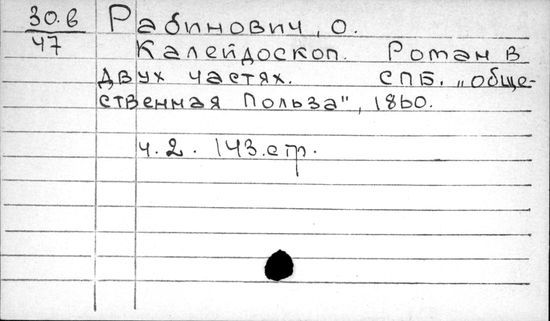 30.в
47
Рабинович, О.
Калейдоскоп. Роман в
двух частях. СПБ. „Обще-
ственная Польза", 1860.
ч.2. 143.стр.